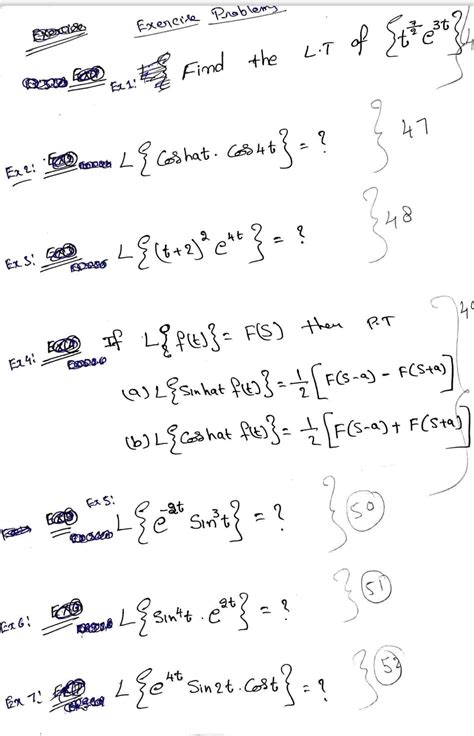 Exercise Problems
Ex1: Find the L.T of {t^{7/2} e^{3t}}
Ex2: L{Coshat. Cos4t} = ? } 47
Ex3: L{(t+2)^2 e^{4t}} = ? } 48
Ex4: If L{f(t)} = F(S) then P.T
(a) L{Sinhat f(t)} = 1/2 [F(S-a) - F(S+a)]
(b) L{Coshat f(t)} = 1/2 [F(S-a) + F(S+a)]
Ex5: L{e^{-2t} Sin^3t} = ? } 50
Ex6: L{Sin^4t . e^{2t}} = ? } 51
Ex7: L{e^{4t} Sin2t. Cost} = ? } 52